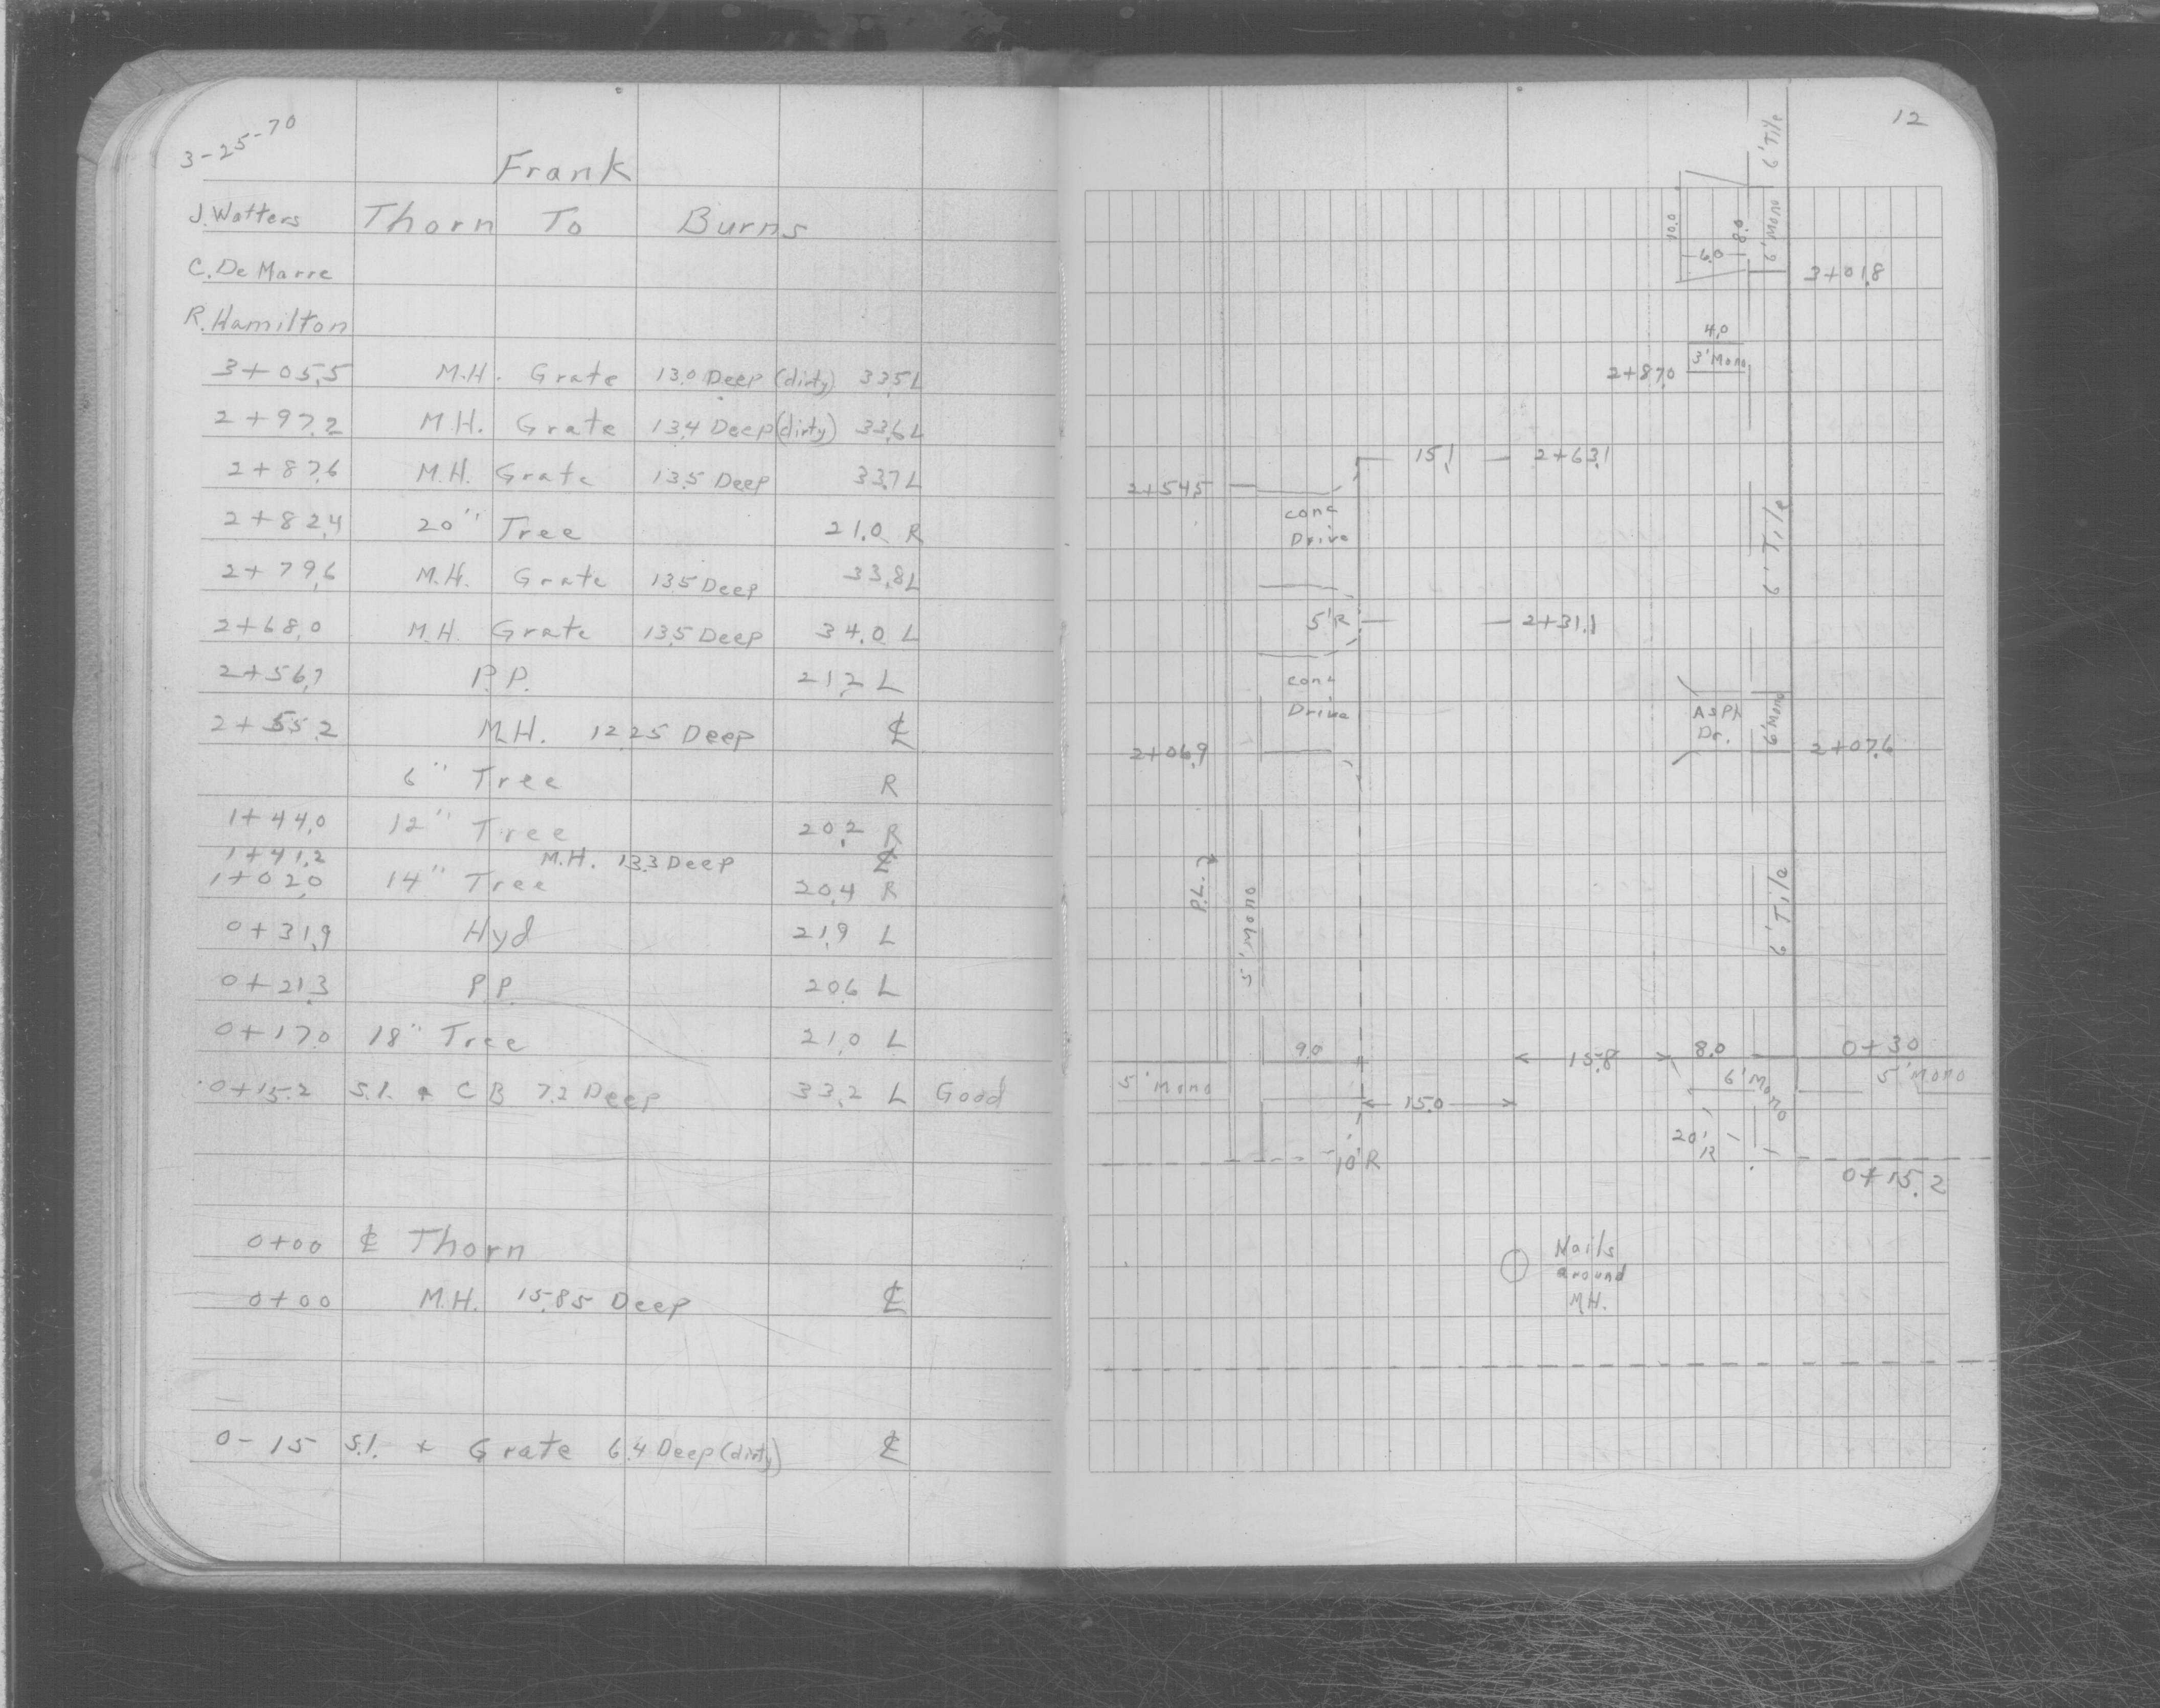 3-25-70
Frank
J. Watters Thorn To Burns
C. De Marre
R. Hamilton
3+05.5 M.H. Grate 13.0 Deep (dirty) 33.5 L
2+97.2 M.H. Grate 13.4 Deep (dirty) 33.6 L
2+87.6 M.H. Grate 13.5 Deep 33.7 L
2+82.4 20" Tree 21.0 R
2+79.6 M.H. Grate 13.5 Deep 33.8 L
2+68.0 M.H. Grate 13.5 Deep 34.0 L
2+56.7 P.P. 21.2 L
2+55.2 M.H. 12.25 Deep ℄
6" Tree R
1+44.0 12" Tree 20.2 R
1+41.2 M.H. 13.3 Deep ℄
1+02.0 14" Tree 20.4 R
0+31.9 Hyd 21.9 L
0+21.3 P.P. 20.6 L
0+17.0 18" Tree 21.0 L
0+15.2 S.I. & C B 7.2 Deep 33.2 L Good
0+00 ℄ Thorn
0+00 M.H. 15.85 Deep ℄
0-15 S.I. & Grate 6.4 Deep (dirty) ℄
12
6' Tile
10.0
6.0
8.0
6' Mono
3+01.8
4.0
3' Mono
2+87.0
15.1
2+63.1
2+54.5
conc
Drive
6' Tile
5'R
2+31.1
conc
Drive
Asph
Dr.
6' Mono
2+06.9
2+07.6
P.L.
5' Mono
6' Tile
9.0
15.8
8.0
0+30
5' Mono
6' Mono
5' Mono
15.0
20'
R
10'R
0+15.2
Nails
around
M.H.